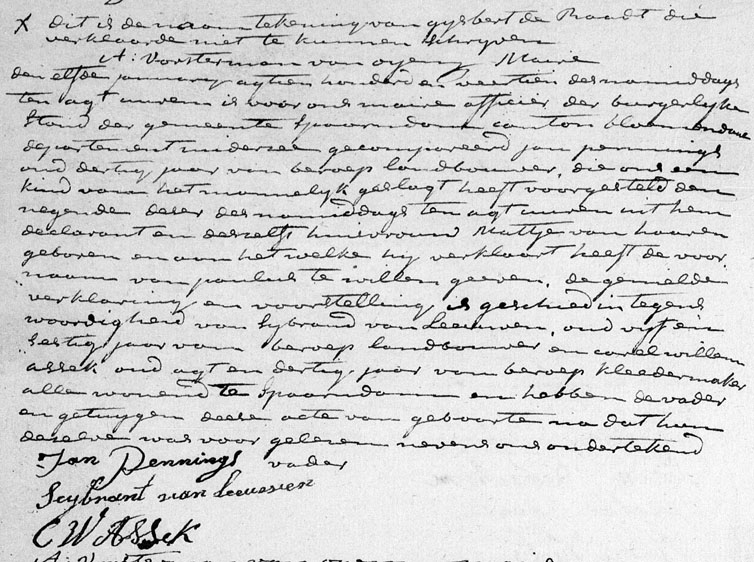 X dit is de naamtekening van gysbert de Raadt die
verklaarde niet te kunnen schryven
A: Vorsterman van oyen Maire
den elfde january agtien honderd en veertien des namiddags
ten agt uuren is voor ons maire officier der burgerlyke
stand der gemeente Spaarndam canton bloemendaal
departement zuiderzee gecompareerd jan pennings
oud dertig jaar van beroep landbouwer, die ons een
kind van het mannelyk geslagt heeft voorgesteld den
negende deser des namiddags ten agt uuren uit hem
declarant en desselfs huisvrouw Mattje van haaren
geboren en aan het welke hy verklaart heeft de voor
naam van paulus te willen geeven, de gemelde
verklaring en voorstelling is geschied in tegens
woordigheid van Sybrand van Leeuwen, oud vyf en
sestig jaar van beroep landbouwer en carel willem
assek oud agt en dertig jaar van beroep kleedermaker
alle wonend te Spaarndam en hebben de vader
en getuygen deese acte van geboorte na dat hun
deselve was voor gelesen nevens ons ondertekend
Jan Pennings vader
Seybrant van Leeuwen
C W Assek